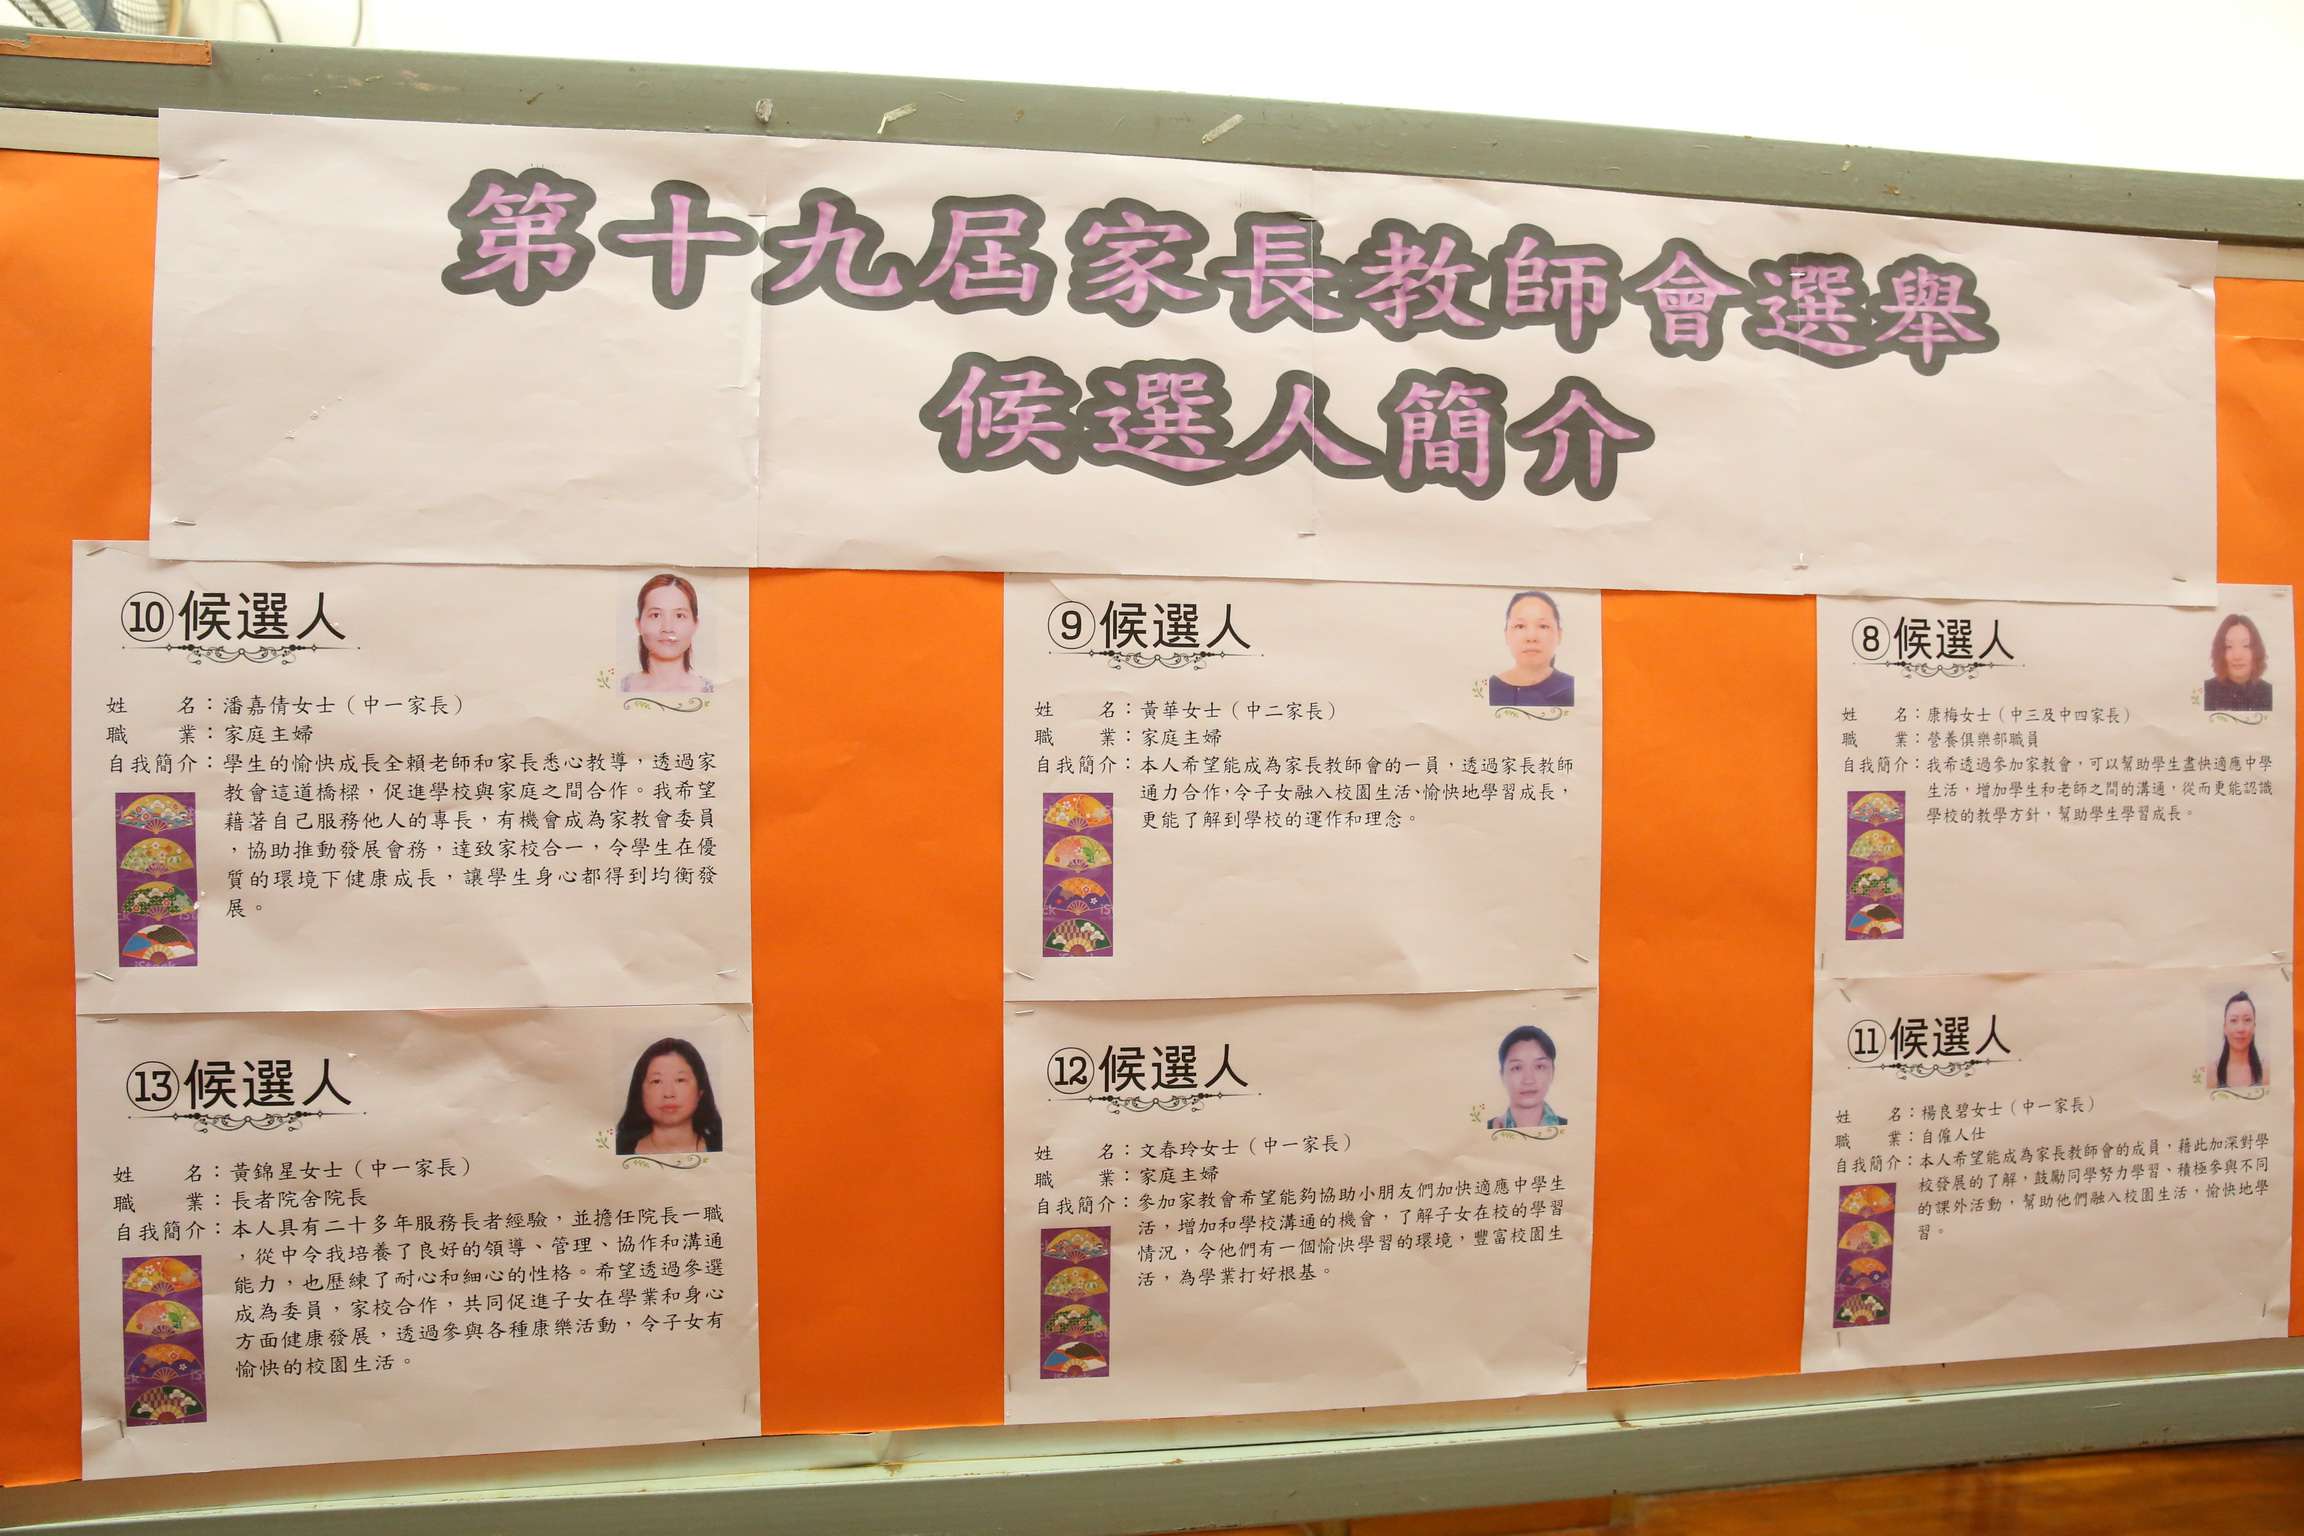 第十九屆家長教師會選舉
候選人簡介
⑩候選人
姓　　名：潘嘉倩女士（中一家長）
職　　業：家庭主婦
自我簡介：學生的愉快成長全賴老師和家長悉心教導，透過家
教會這道橋樑，促進學校與家庭之間合作。我希望
藉著自己服務他人的專長，有機會成為家教會委員
，協助推動發展會務，達致家校合一，令學生在優
質的環境下健康成長，讓學生身心都得到均衡發
展。
⑨候選人
姓　　名：黃華女士（中二家長）
職　　業：家庭主婦
自我簡介：本人希望能成為家長教師會的一員，透過家長教師
通力合作，令子女融入校園生活、愉快地學習成長，
更能了解到學校的運作和理念。
⑧候選人
姓　　名：康梅女士（中三及中四家長）
職　　業：營養俱樂部職員
自我簡介：我希透過參加家教會，可以幫助學生盡快適應中學
生活，增加學生和老師之間的溝通，從而更能認識
學校的教學方針，幫助學生學習成長。
⑬候選人
姓　　名：黃錦星女士（中一家長）
職　　業：長者院舍院長
自我簡介：本人具有二十多年服務長者經驗，並擔任院長一職
，從中令我培養了良好的領導、管理、協作和溝通
能力，也歷練了耐心和細心的性格。希望透過參選
成為委員，家校合作，共同促進子女在學業和身心
方面健康發展，透過參與各種康樂活動，令子女有
愉快的校園生活。
⑫候選人
姓　　名：文春玲女士（中一家長）
職　　業：家庭主婦
自我簡介：參加家教會希望能夠協助小朋友們加快適應中學生
活，增加和學校溝通的機會，了解子女在校的學習
情況，令他們有一個愉快學習的環境，豐富校園生
活，為學業打好根基。
⑪候選人
姓　　名：楊良碧女士（中一家長）
職　　業：自僱人仕
自我簡介：本人希望能成為家長教師會的成員，藉此加深對學
校發展的了解，鼓勵同學努力學習、積極參與不同
的課外活動，幫助他們融入校園生活，愉快地學
習。